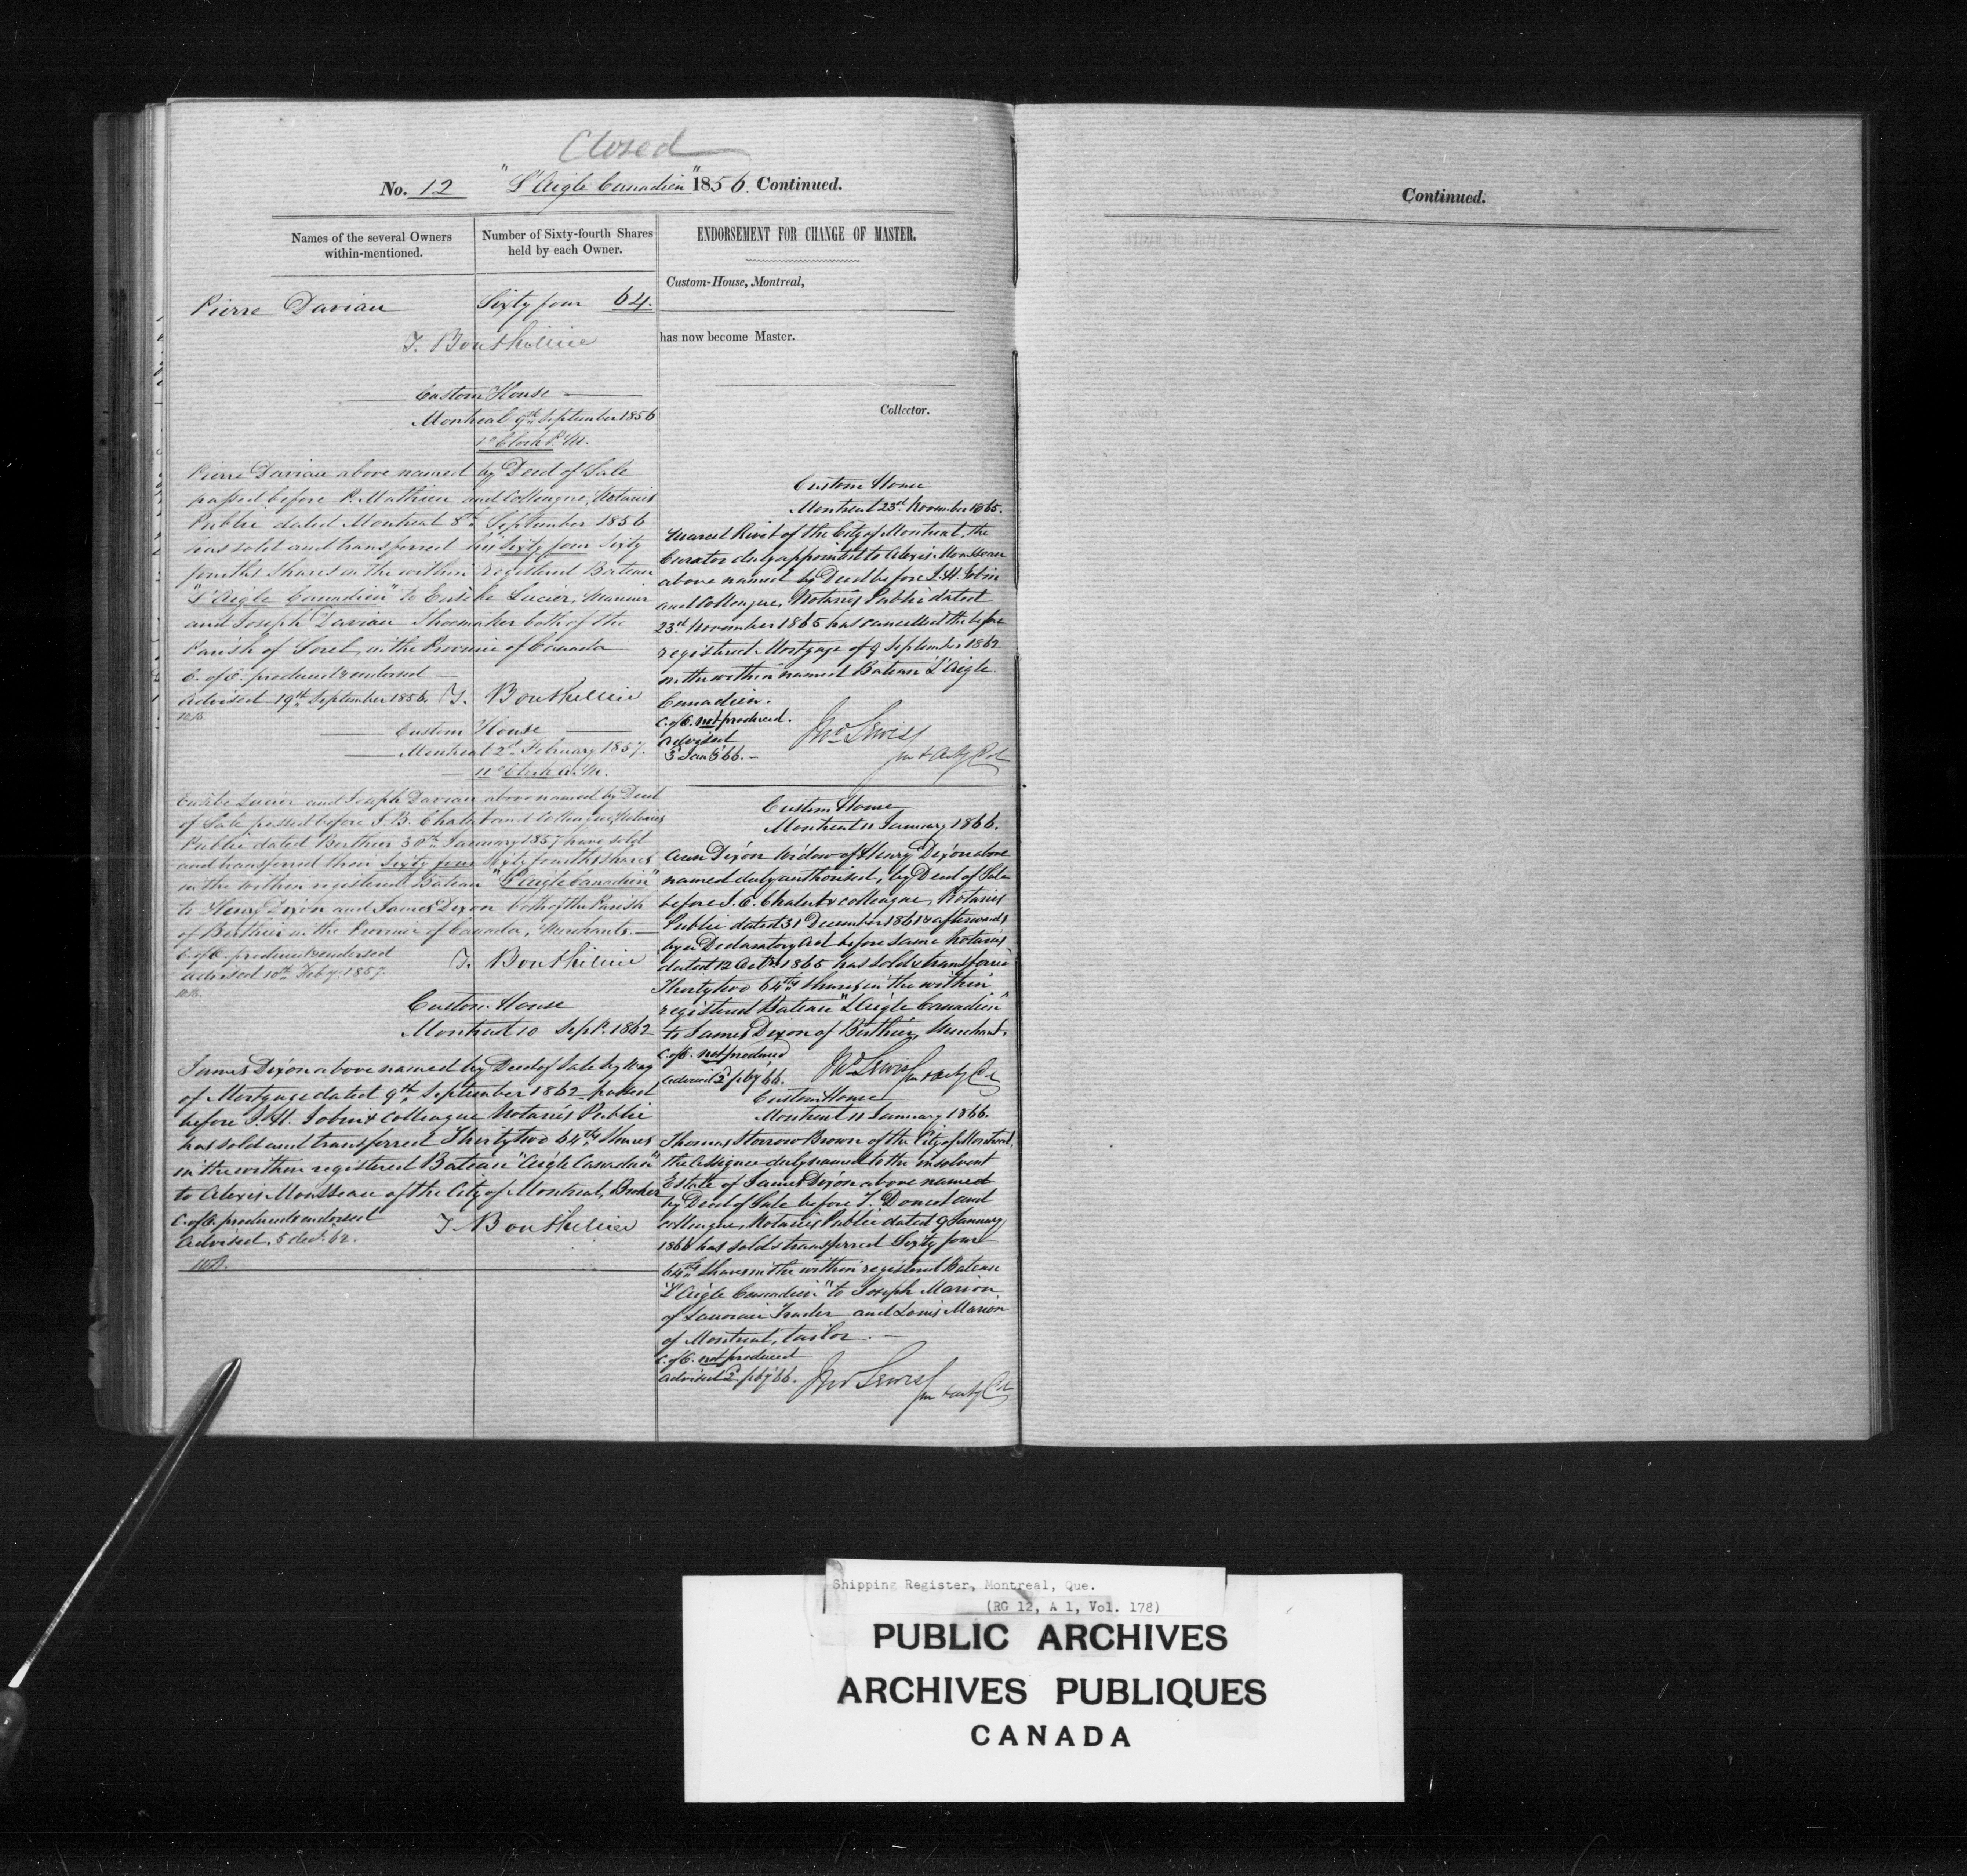 Closed
No. 12 "L'Aigle Canadien" 1856. Continued.
Names of the several Owners
within-mentioned.
Number of Sixty-fourth Shares
held by each Owner.
Pierre Davian
Sixty four 64.
T. Bouthillier
Custom House
Montreal 9th September 1856
1 o'Clock P.M.
Pierre Davian above named by Deed of Sale
passed before P. Mathieu and Colleague, Notaries
Public dated Montreal 8th September 1856
has sold and transferred his Sixty four Sixty
fourths Shares in the within registered Bateau
"L'Aigle Canadien" to Eusèbe Lucier, Mariner
and Joseph Davian Shoemaker both of the
Parish of Sorel, in the Province of Canada
C. of O. produced & endorsed
Advised 19th September 1856. T. Bouthillier
Custom House
Montreal 2d February 1857.
11 o'Clock A.M.
Eusèbe Lucier and Joseph Davian above named by Deed
of Sale passed before J. B. Chalut and Colleague, Notaries
Public dated Berthier 30th January 1857 have sold
and transferred their Sixty four Sixty fourths shares
in the within registered Bateau "L'Aigle Canadien"
to Henry Dixon and James Dixon both of the Parish
of Berthier in the Province of Canada, Merchants.
C. of O. produced & endorsed
Advised 10th Feby. 1857. T. Bouthillier
Custom House
Montreal 10 Sept. 1862
James Dixon above named by Deed of Sale by Way
of Mortgage dated 9th September 1862 passed
before J. H. Jobin & Colleague Notaries Public
has sold and transferred Thirty two 64ths Shares
in the within registered Bateau "Aigle Canadien"
to Alexis Mousseau of the City of Montreal, Broker
C. of O. produced & endorsed
Advised, 5 dec. 62. T. Bouthillier
ENDORSEMENT FOR CHANGE OF MASTER.
Custom-House, Montreal,
has now become Master.
Collector.
Custom House
Montreal 23rd November 1865.
Marcel Rivet of the City of Montreal, the
Curator duly appointed to Alexis Mousseau
above named by Deed before J. H. Jobin
and Colleague, Notaries Public dated
23rd November 1865 has cancelled the before
registered Mortgage of 9 September 1862
on the within named Bateau "L'Aigle
Canadien.
C. of O. not produced.
Advised
3 Jan'y 66. Jno Lewis
Custom House
Montreal 11 January 1866.
Ann Dixon Widow of Henry Dixon above
named duly authorised, by Deed of Sale
before J. B. Chalut & colleague, Notaries
Public dated 31 December 1861 & afterwards
by a Declaratory Act before same Notaries
dated 12 Octr. 1865 has sold & transferred
Thirty two 64ths shares in the within
registered Bateau "L'Aigle Canadien"
to James Dixon of Berthier, Merchant.
C. of O. not produced
Advised 2 feby 66. Jno Lewis
Custom House
Montreal 11 January 1866.
Thomas Storrow Brown of the City of Montreal,
the Assignee duly named to the insolvent
Estate of James Dixon above named
by Deed of Sale before T. Doucet and
colleague, Notaries Public dated 9 January
1866 has sold & transferred Sixty four
64ths shares in the within registered Bateau
"L'Aigle Canadien" to Joseph Marion
of Lanoraie Trader and Louis Marion
of Montreal, tailor.
C. of O. not produced
Advised 2 feby 66. Jno Lewis
Continued.
Shipping Register, Montreal, Que.
(RG 12, A 1, Vol. 178)
PUBLIC ARCHIVES
ARCHIVES PUBLIQUES
CANADA